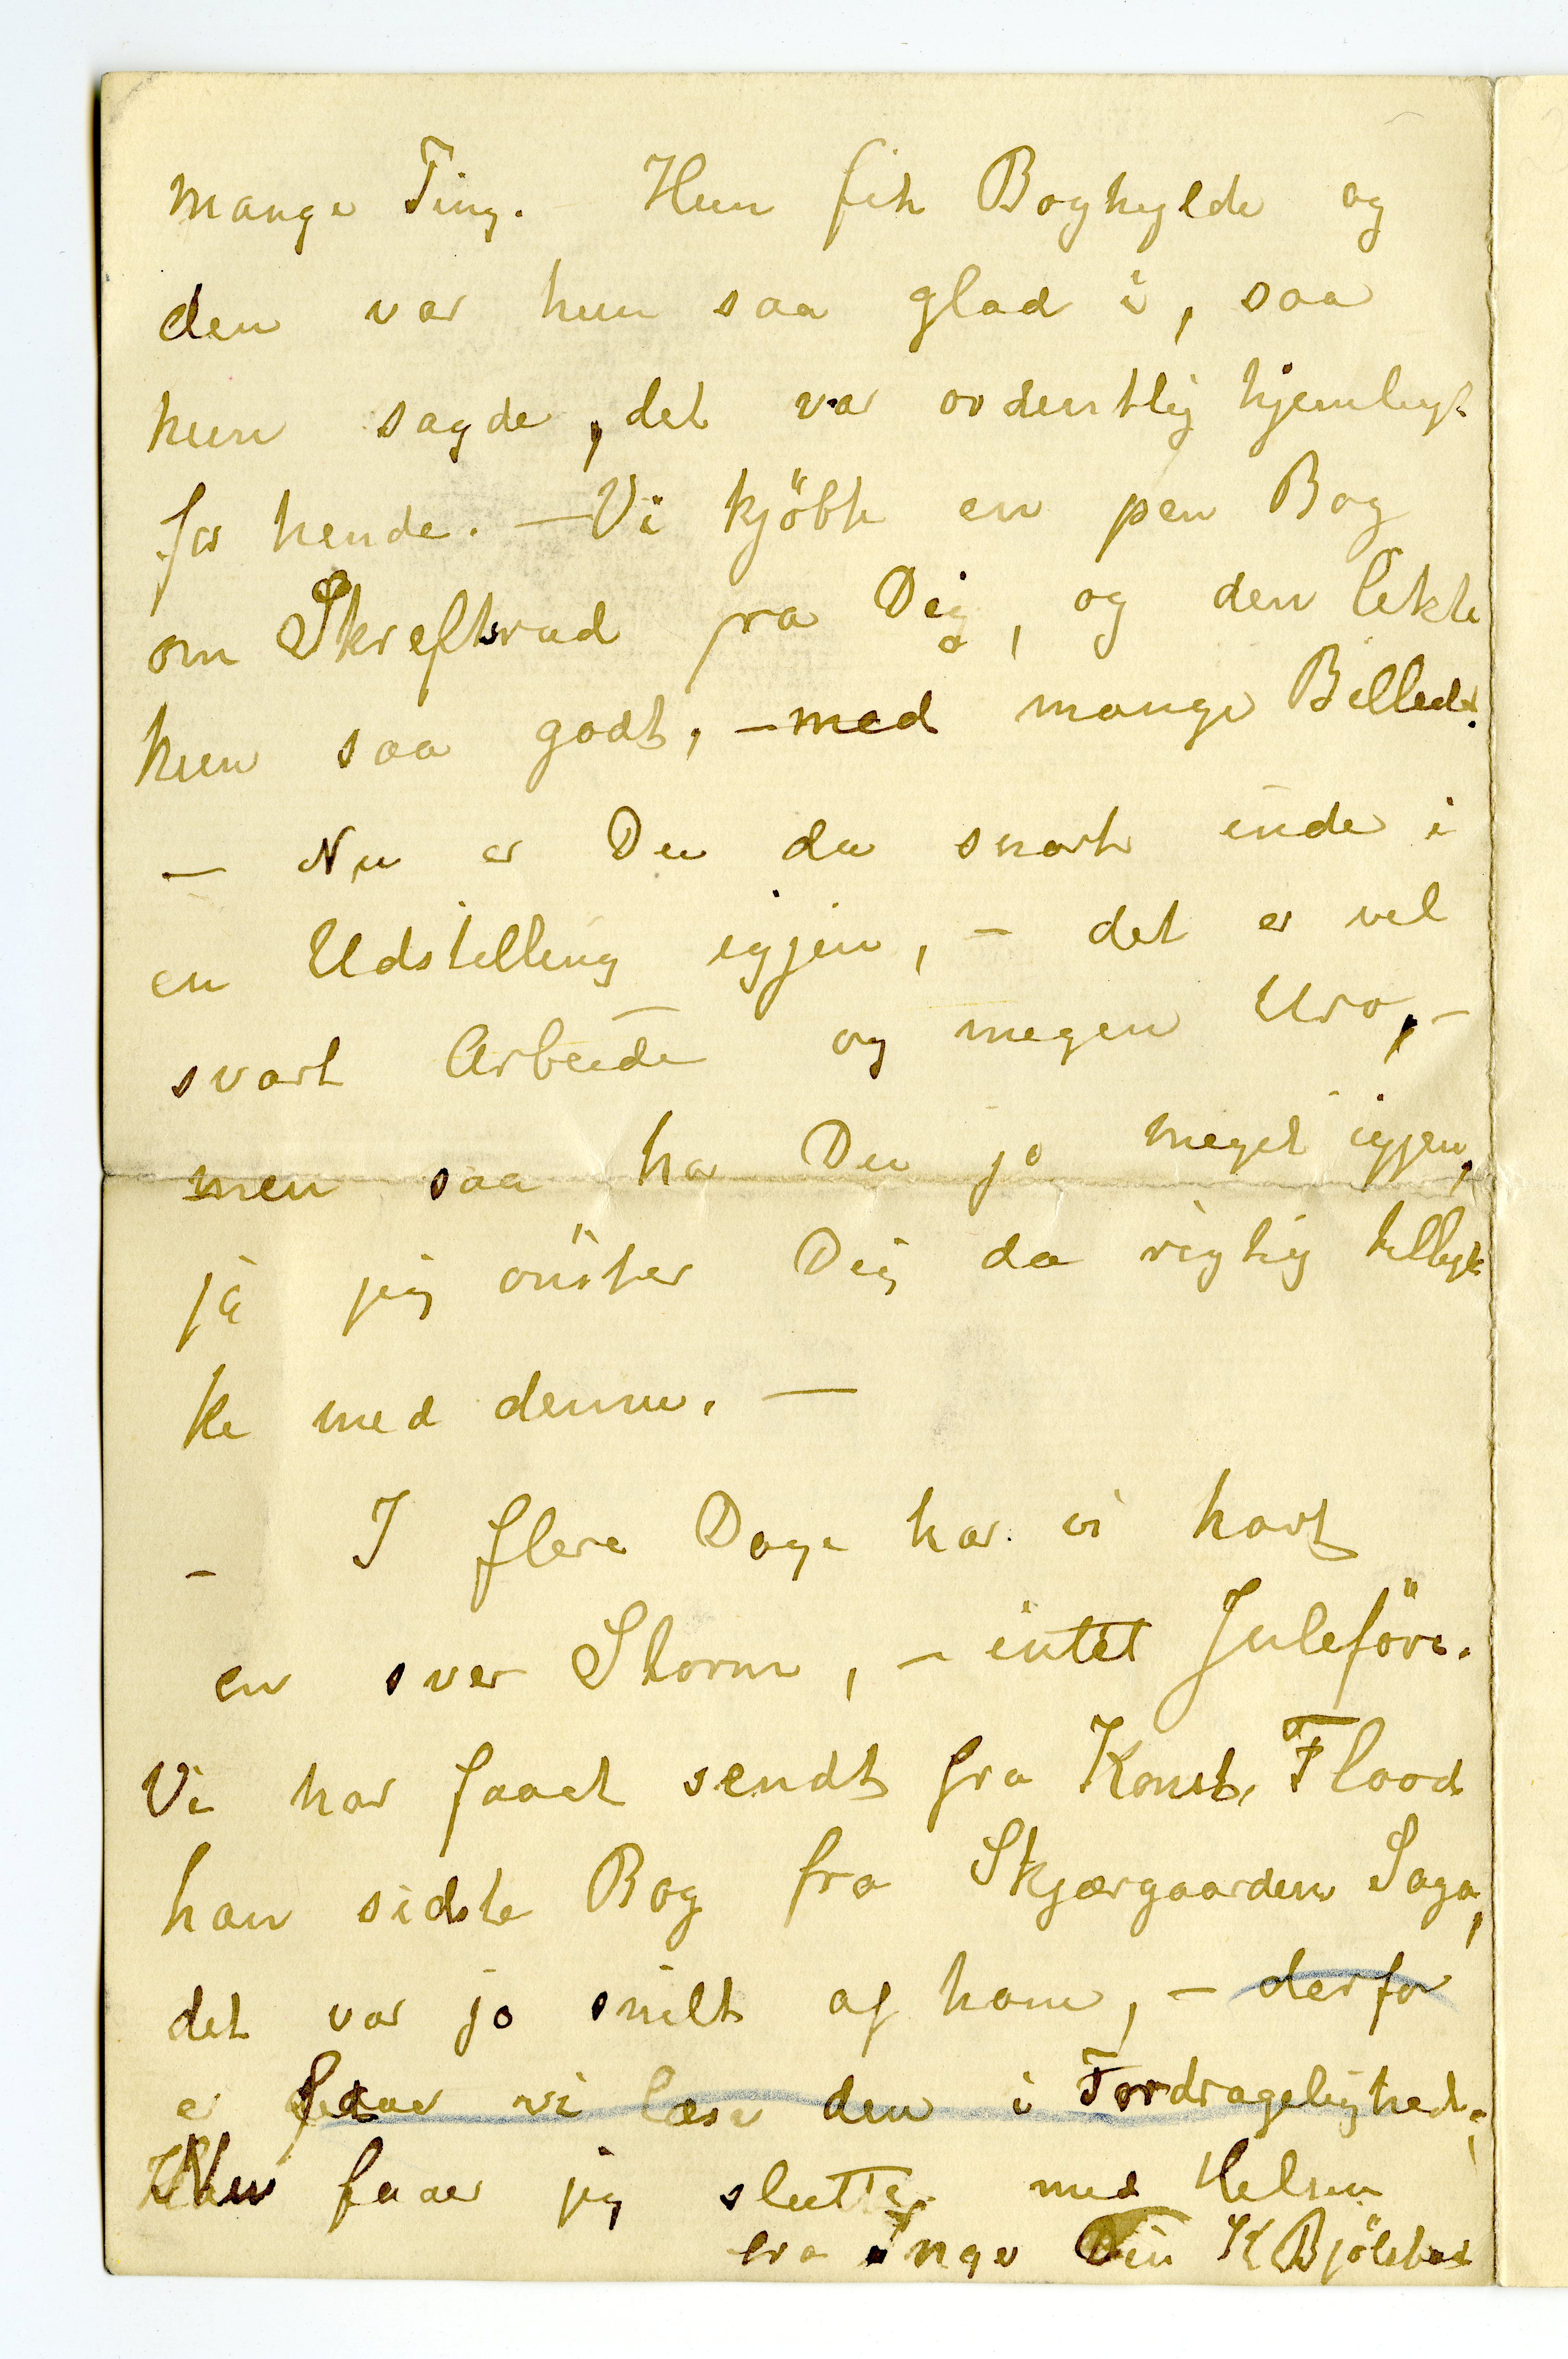 mange Ting. Hun fik Boghylde og
den var hun saa glad i, saa
hun sagde, det var ordentlig hjemligt
for hende. – Vi kjöbte en pen Bog
om Skrefsrud fra Dig, og den likte
hun saa godt, – med mange Billeder.
– Nu er Du da snart inde i
en Udstilling igjen, – det er vel
svart Arbeide og megen Uro, –
men saa ha Du jo meget igjen,
ja jeg önsker Dig da rigtig tillyk
ke med denne. –
– I flere Dage har vi havt
en svær Storm, – intet Juleföre.
Vi har faaet sendt fra Konst. Flood
han sidste Bog fra Skjærgaarden Saga,
det var jo snilt af ham, – derfor
er faar vi læse den i Fordragelighed.
Nu faaer jeg slutte med Helsen
fra Inga Din K Bjölstad